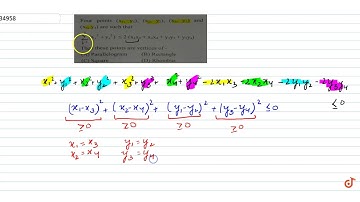 34958
Four points (x₁, y₁), (x₂, y₂), (x₃, y₃) and
(x₄, y₄) are such that
these points are vertices of -
Parallelogram (B) Rectangle
Square (D) Rhombus
x₁² + y₁² + x₂² + y₂² + x₃² + y₃² + x₄² + y₄² - 2x₁x₃ - 2x₂x₄ - 2y₁y₂ - 2y₃y₄
≤0
(x₁-x₃)² + (x₂-x₄)² + (y₁-y₂)² + (y₃-y₄)² ≤0
≥0 ≥0 ≥0 ≥0
x₁=x₃ y₁=y₂
x₂=x₄ y₃=y₄